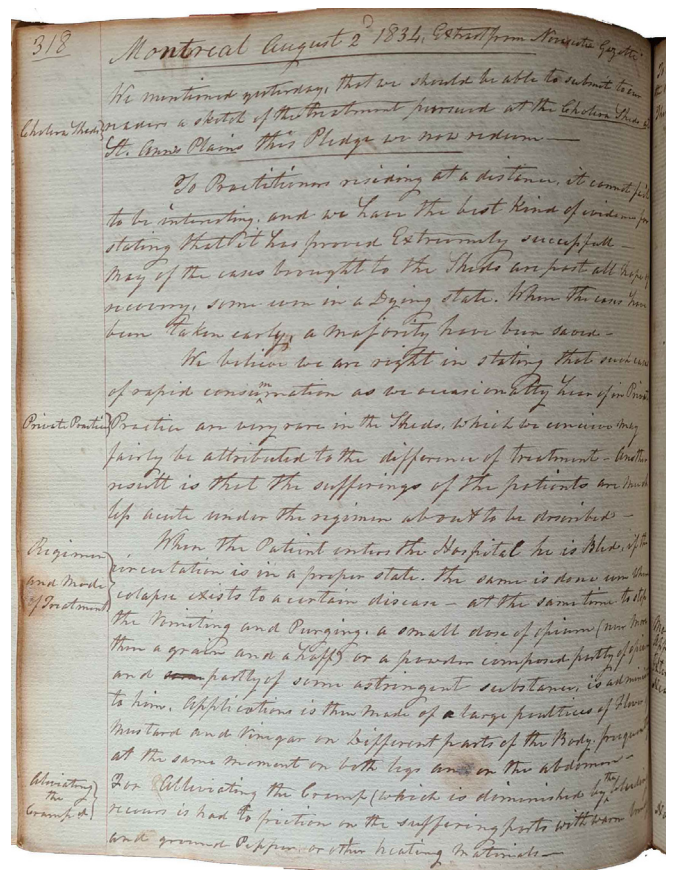 318
Montreal August 2d 1834, Extract from Gazette
We mentioned yesterday, that we should be able to submit to our
Cholera Sheds
readers a sketch of the treatment pursued at the Cholera Sheds
St. Anns Plains this Pledge we now redeem —
To Practitioners residing at a distance, it cannot fail
to be interesting, and we have the best Kind of evidence for
stating that it has proved Extremely successfull —
Many of the cases brought to the Sheds are past all hope of
recovery, some even in a Dying state. When the cases have
been taken early, a majority have been saved —
We believe we are right in stating that such cases
of rapid consummation as we occasionally hear of in Private
Private Practice
Practice are very rare in the Sheds, which we conceive may
fairly be attributed to the difference of treatment — Another
result is that the sufferings of the patients are much
less acute under the regimen about to be described —
Regimen
and Mode
of Treatment
When the Patient enters the Hospital he is Bled, if the
circulation is in a proper state. the same is done even when
colapse exists to a certain disease — at the same time to stop
the Vomiting and Purging, a small dose of opium (never more
than a grain and a half) or a powder composed partly of opium
and partly of some astringent substance, is
to him. Applications is then made of a large poultices of Flower
Mustard and Vinegar on Different parts of the Body, frequently
at the same moment on both legs and on the abdomen —
Aliviating
the
Cramp &
For Alliviating the Cramp (which is diminished by the
recours is had to friction on the suffering parts with warm
and ground Pepper or other heating Materials —